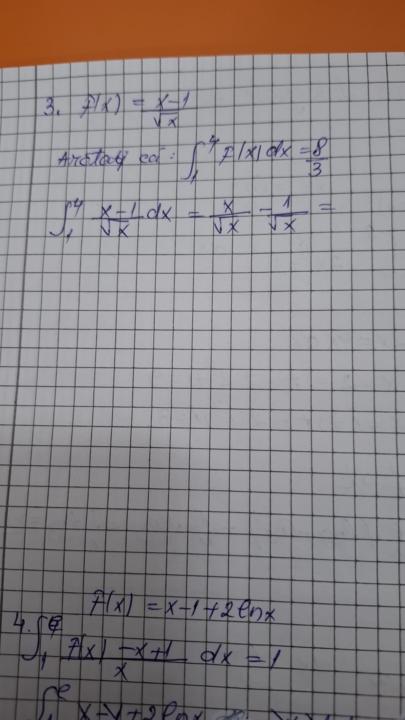 3. f(x) = x-1/√x
Arătați că: ∫₁⁴ f(x) dx = 8/3
∫₁⁴ x-1/√x dx = x/√x - 1/√x =
f(x) = x-1+2lnx
4. ∫₁ᵉ f(x)-x+1/x dx = 1